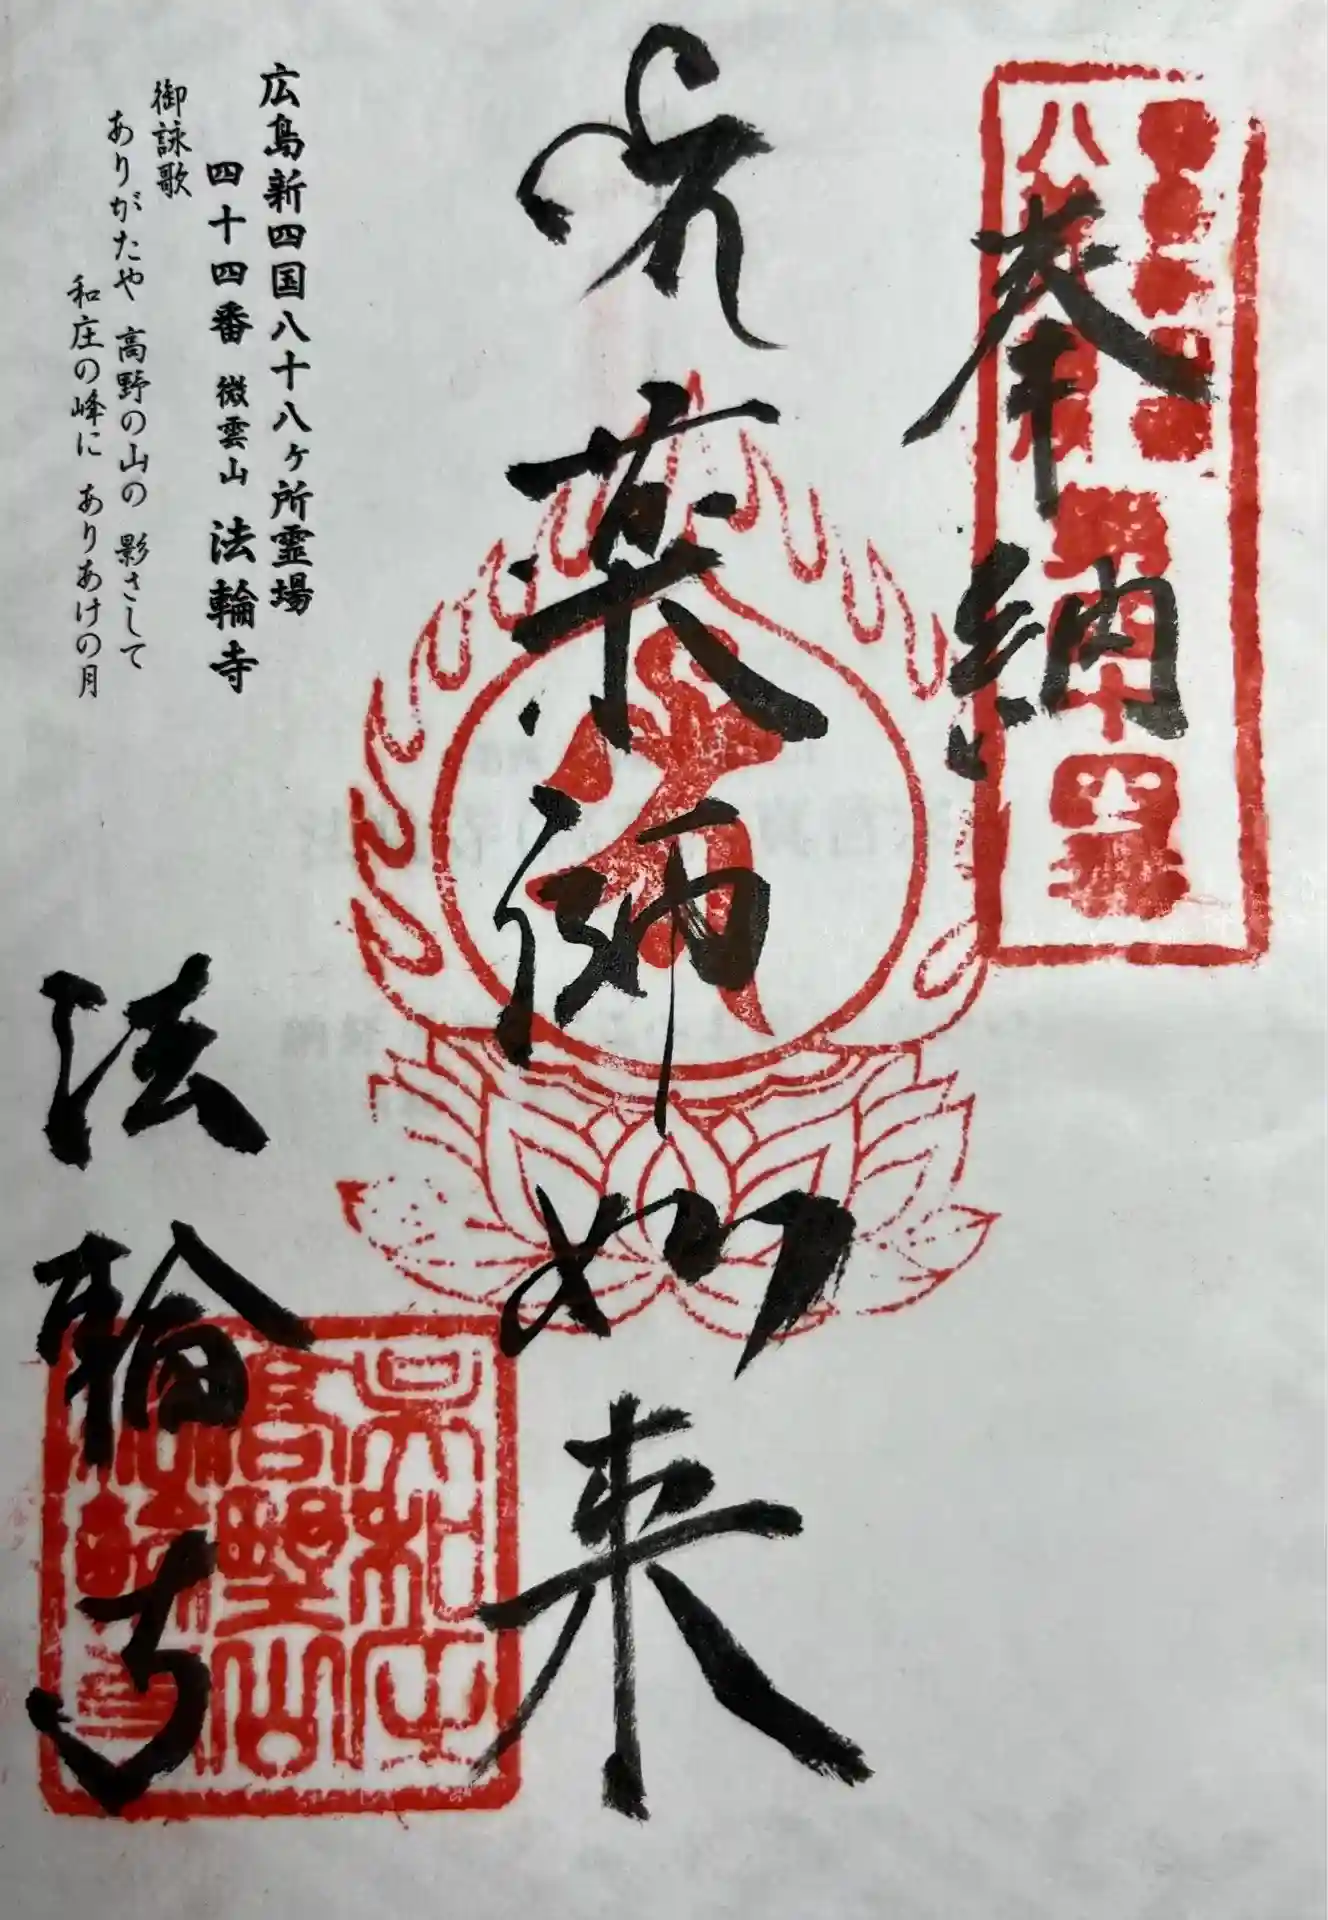 奉納
薬師如来
法輪寺
広島新四国八十八ヶ所霊場
四十四番 微雲山 法輪寺
御詠歌
ありがたや 高野の山の 影さして
和庄の峰に ありあけの月
第四十四番
呉和庄
高野山
法輪